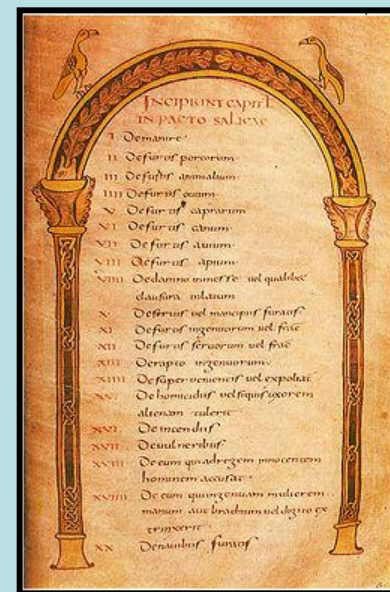 INCIPIUNT CAPITL
IN PACTO SALICAE
I De manire
II De furtis porcorum
III De furtis animalium
IIII De furtis ouium
V De furtis caprarum
VI De furtis canum
VII De furtis auium
VIII De furtis apium
VIIII De damno in messe uel qualibet
clausura inlatum
X De seruis uel mancipiis furatis
XI De furtis ingenuorum uel frac
XII De furtis seruorum uel frac
XIII De rapto ingenuorum
XIIII De superuenientis uel expoliat
XV De homicidiis uel siquis uxorem
alienam tulerit
XVI De incendiis
XVII De uulneribus
XVIII De eum qui adregem innocentem
hominem accusat
XVIIII De eum qui ingenuam mulierem
manum aut brachium uel digito ex
trinxerit
XX De nauibus furatis